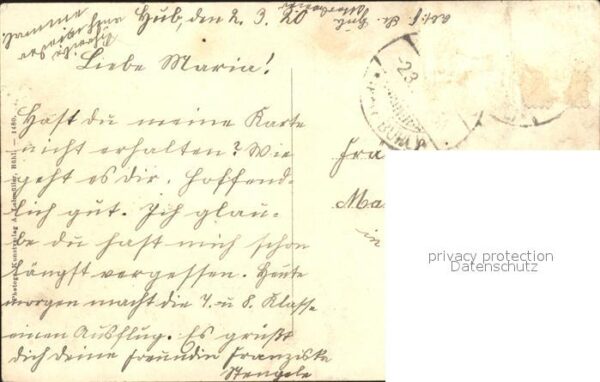 Hub, den 2. 3. 20
Liebe Maria!
Hast du meine Karte
nicht erhalten? Wie
geht es dir. Hoffend-
lich gut. Ich glau-
be du hast mich schon
längst vergessen. Heute
morgen macht die 7. u 8. Klasse
einen Ausflug. Es grüßt
dich deine Freundin Franziska
Stengele
Bühl. — 1480.
BÜHL
Fra
Ma
in
privacy protection
Datenschutz